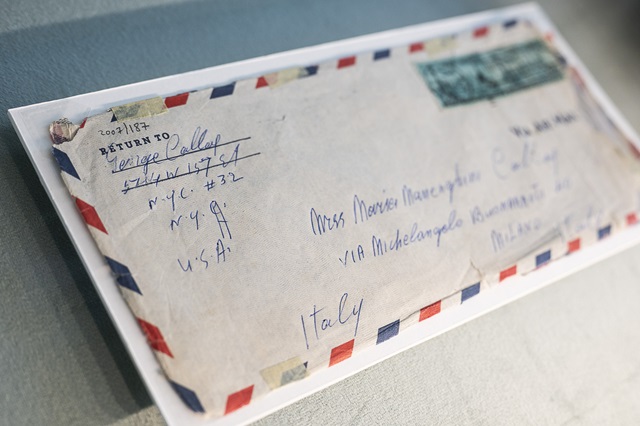 2007/187
RETURN TO
George Callas
W 157 St
N.Y.C. #32
N.Y.
U.S.A.
Miss Maria Meneghini Callas
VIA Michelangelo Buonarroti
MILANO
Italy